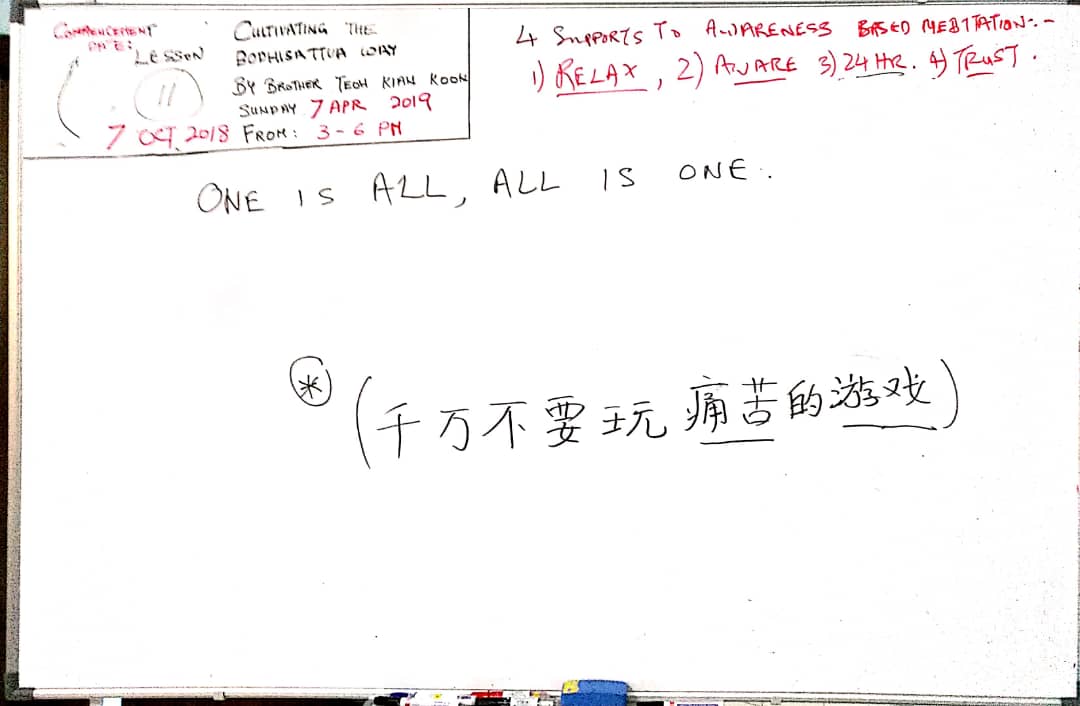 COMMENCEMENT
DATE:
LESSON
11
7 OCT 2018
CULTIVATING THE
BODHISATTVA WAY
BY BROTHER TEOH KIAN KOON
SUNDAY 7 APR 2019
FROM: 3-6 PM
4 SUPPORTS TO AWARENESS BASED MEDITATION:-
1) RELAX, 2) AWARE 3) 24 HR. 4) TRUST.
ONE IS ALL, ALL IS ONE.
* (千万不要玩痛苦的游戏)